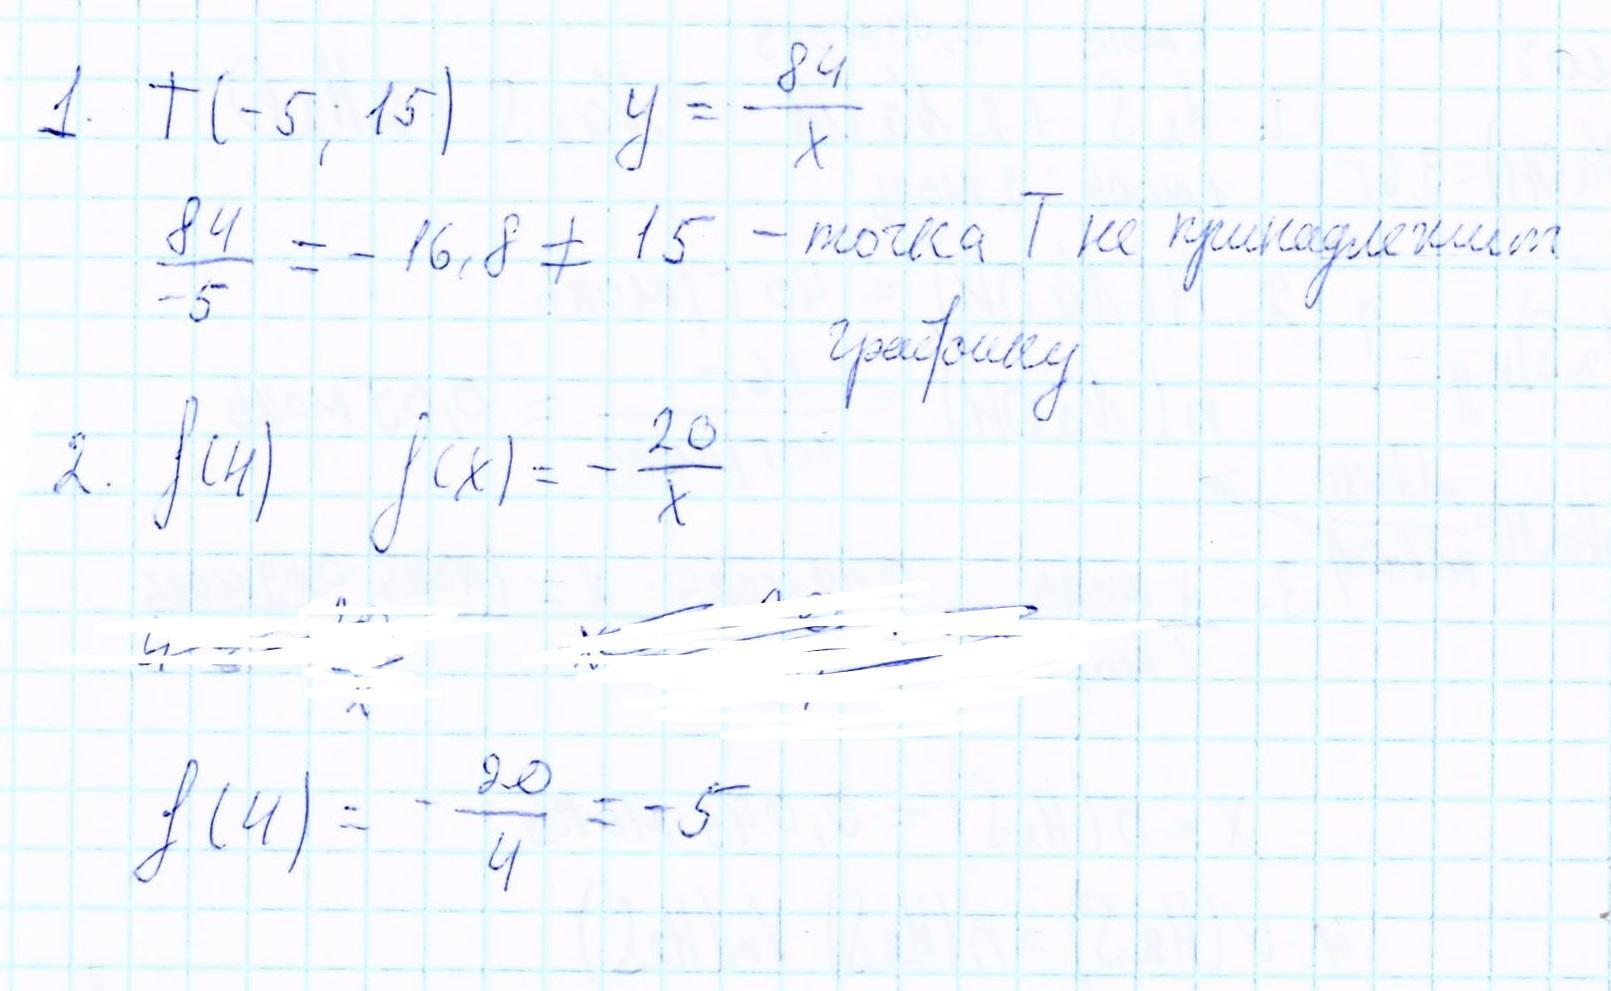 1. T(-5; 15) y = 84/x
84/-5 = -16,8 ≠ 15 - точка T не принадлежит
графику.
2. f(4) f(x) = - 20/x
f(4) = - 20/4 = -5